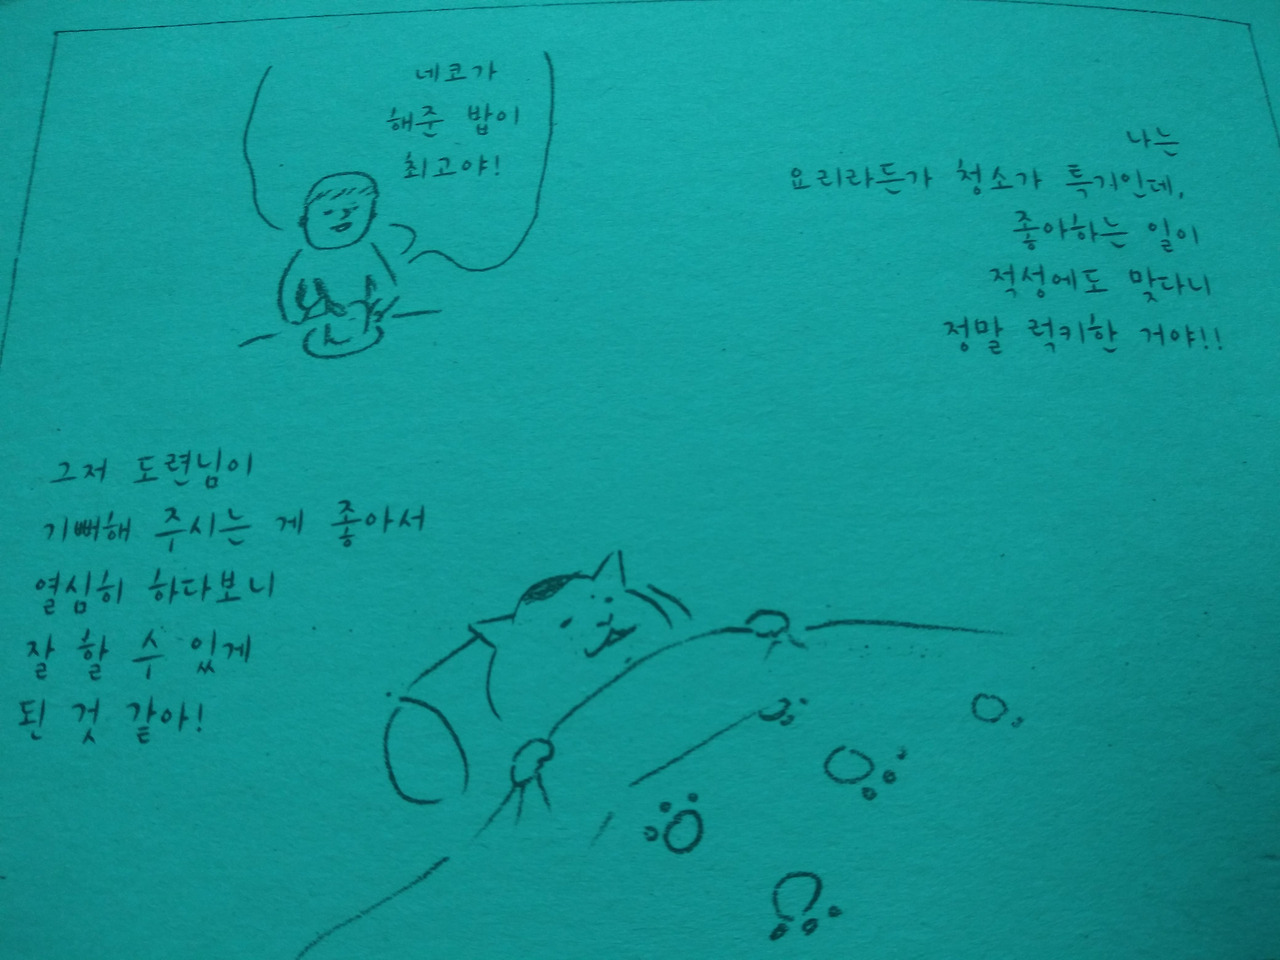 네코가
해준 밥이
최고야!
나는
요리라든가 청소가 특기인데,
좋아하는 일이
적성에도 맞다니
정말 럭키한 거야!!
그저 도련님이
기뻐해 주시는 게 좋아서
열심히 하다보니
잘 할 수 있게
된 것 같아!